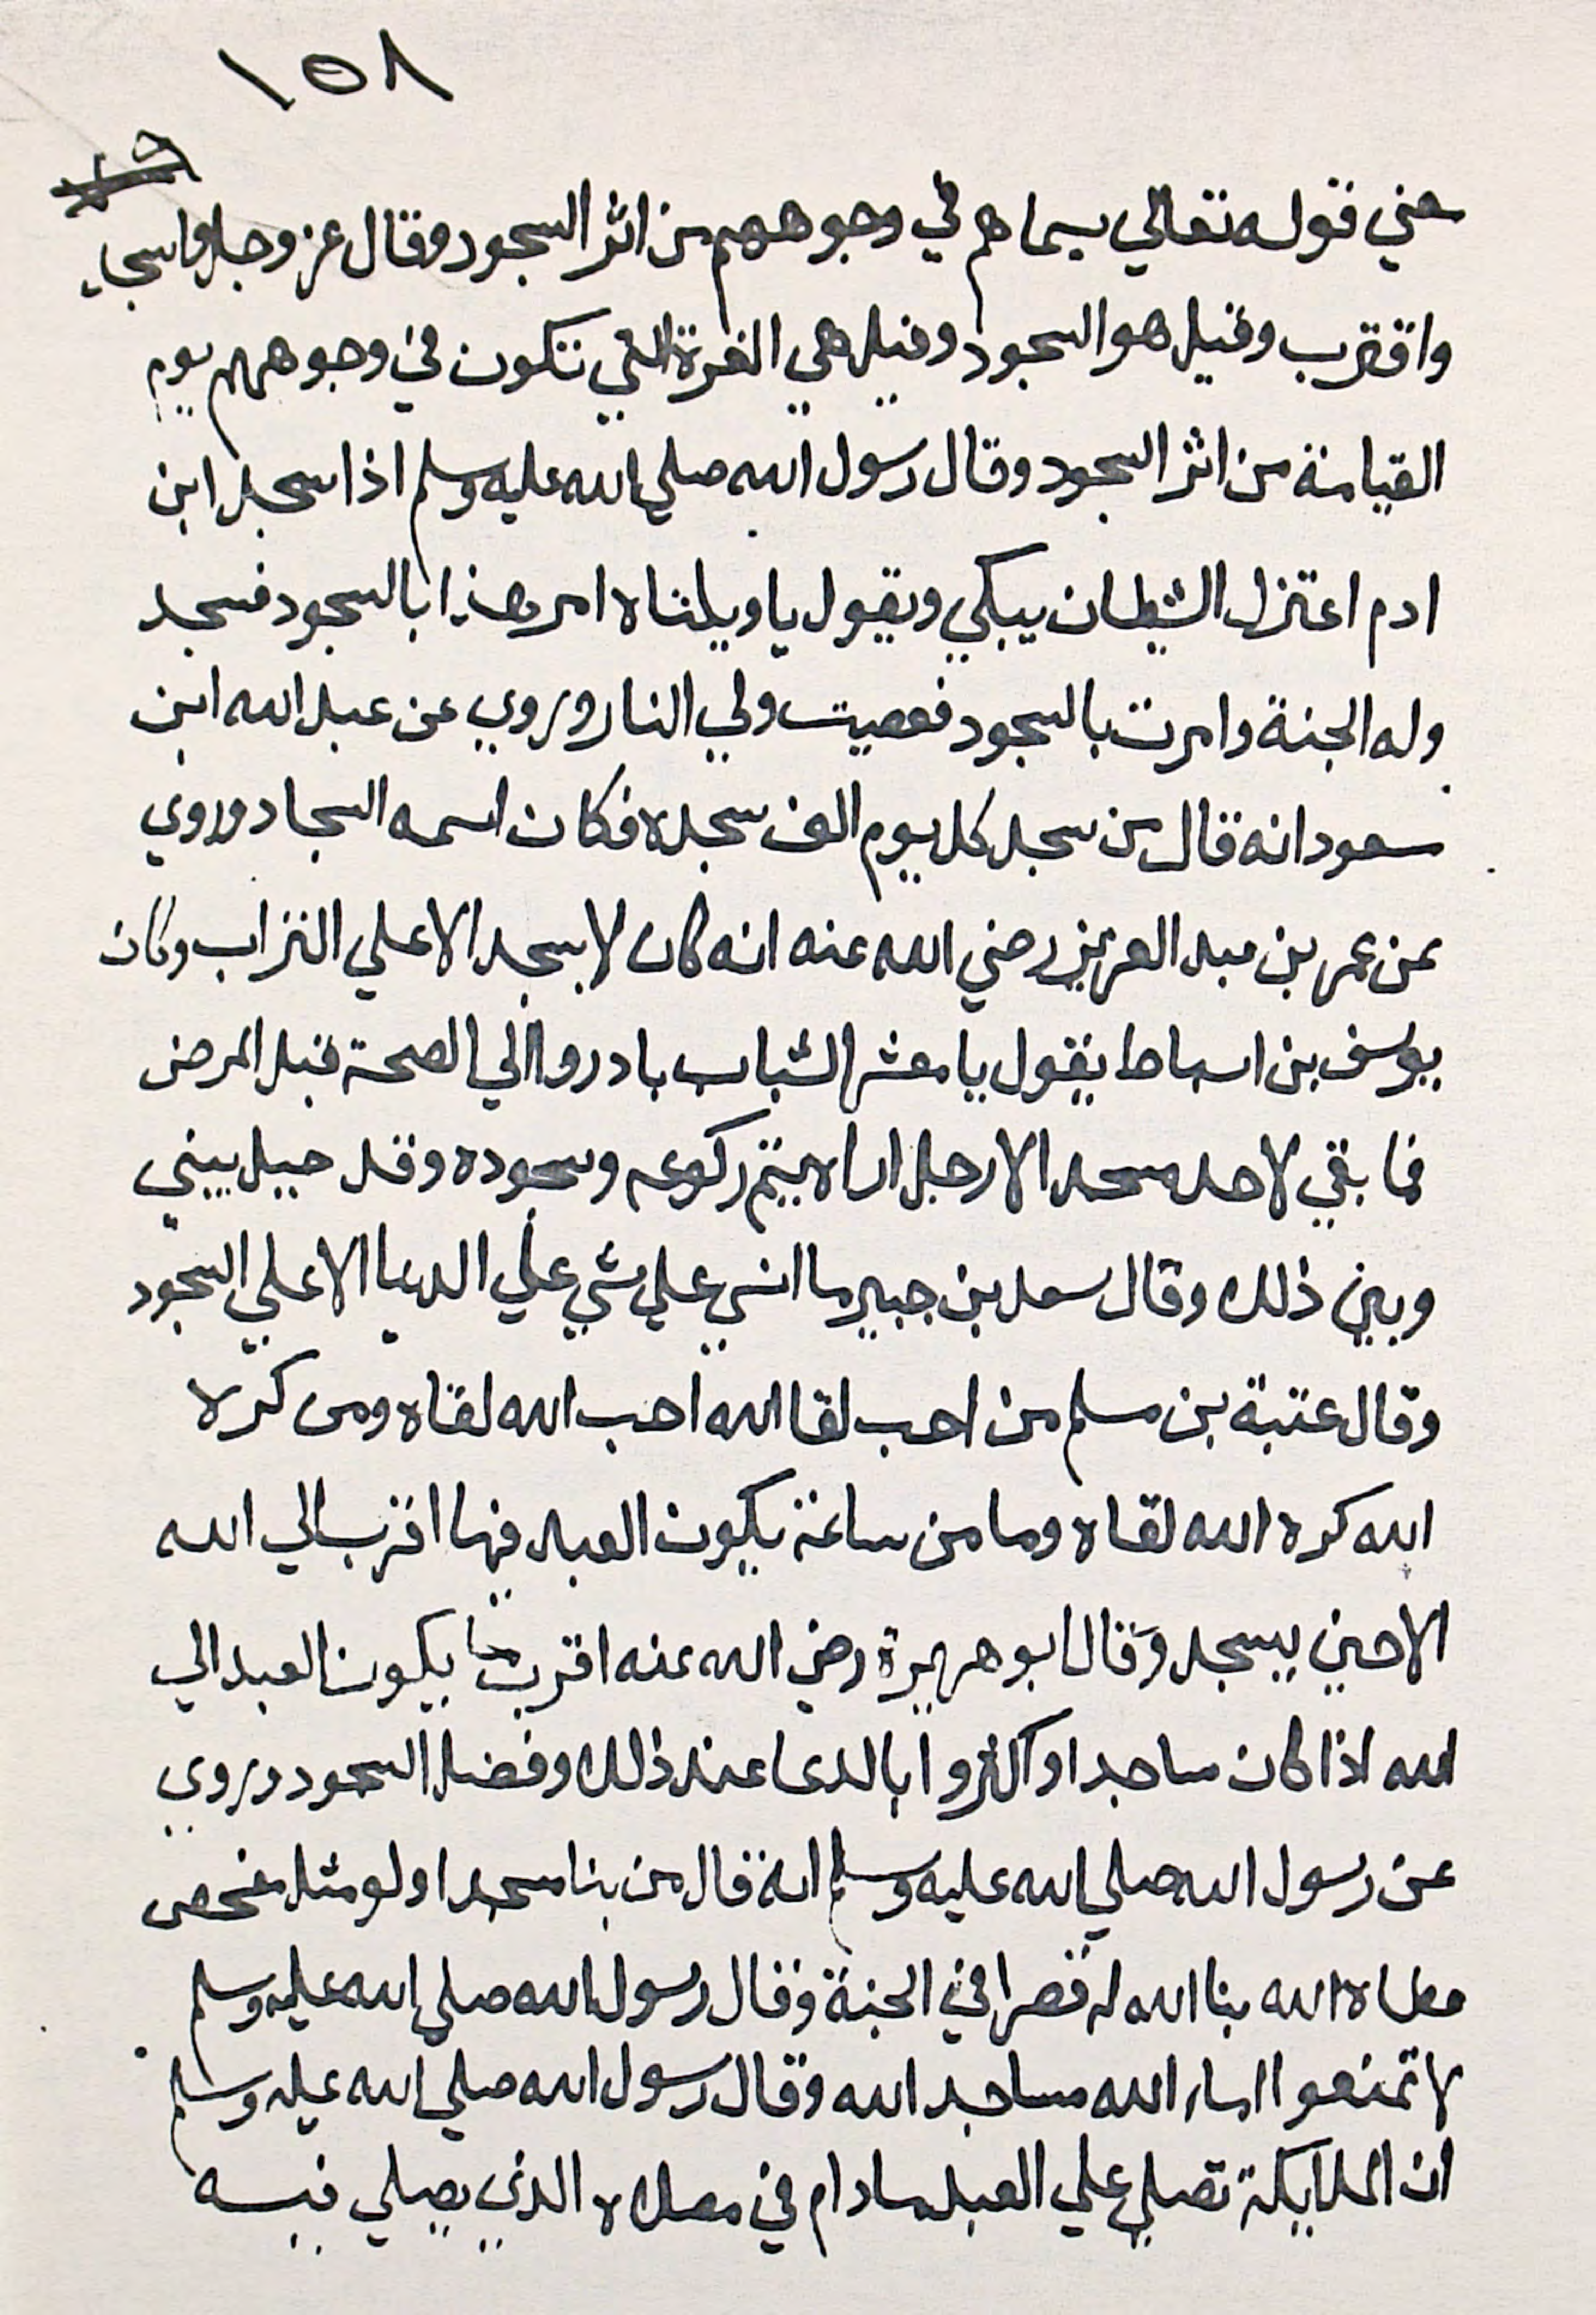 ١٥٨
معني قوله تعالي سيماهم في وجوههم من اثر السجود وقال عز وجل واسجد
واقترب وقيل هو السجود وقيل هي الغرة التي تكون في وجوههم يوم
القيامة من اثر السجود وقال رسول الله صلي الله عليه وسلم اذا سجد ابن
ادم اعتزل الشيطان يبكي ويقول يا ويلتاه امر هذا بالسجود فسجد
وله الجنة وامرت بالسجود فعصيت ولي النار وروي عن عبد الله ابن
مسعود انه قال من سجد كل يوم الف سجده فكان اسمه السجاد وروي
عن عمر بن عبد العزيز رضي الله عنه انه كان لا يسجد الا علي التراب وكان
يوسف بن اسباط يقول يا معشر الشباب بادروا الي الصحة قبل المرض
فما بقي لاحد مسجد الا رجل اراه يتم ركوعه وسجوده وقد حيل بيني
وبين ذلك وقال سعد بن جبير ما اسي علي شي علي الدنيا الا علي السجود
وقال عتبة بن مسلم من احب لقا الله احب الله لقاه ومن كره
الله كره الله لقاه وما من ساعة يكون العبد فيها اقرب الي الله
الا حين يسجد وقال ابو هريرة رضي الله عنه اقرب ما يكون العبد الي
الله اذا كان ساجدا واكثروا بالدعا عند ذلك وفضل السجود وروي
عن رسول الله صلي الله عليه وسلم انه قال من بنا مسجدا ولو مثل مفحص
قطاه الله بنا الله له قصرا في الجنة وقال رسول الله صلي الله عليه وسلم
لا تمنعوا اماء الله مساجد الله وقال رسول الله صلي الله عليه وسلم
ان الملايكة تصلي علي العبد ما دام في مصلاه الذي يصلي فيه